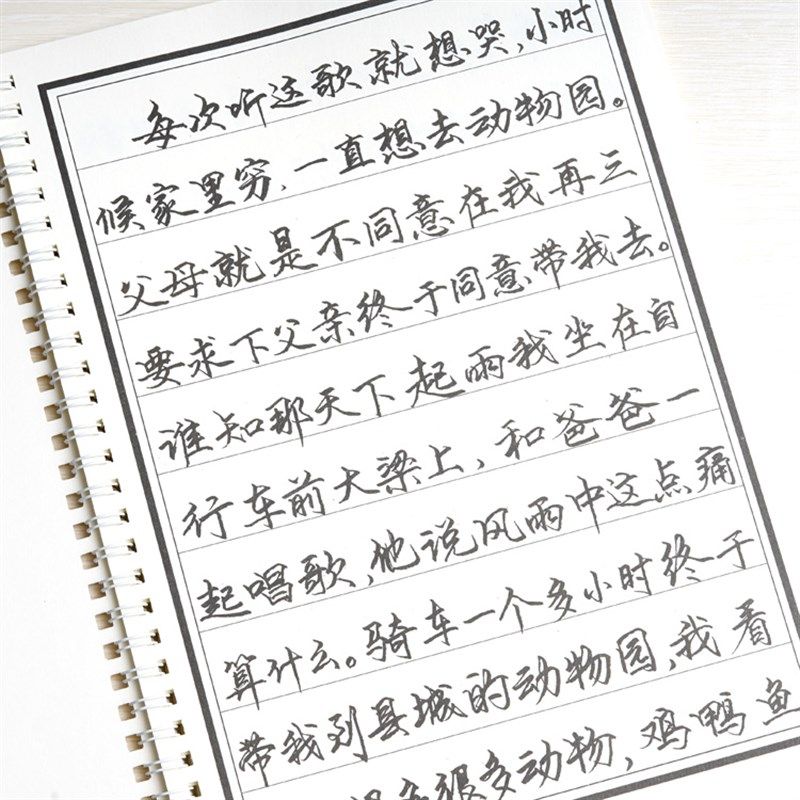 每次听这歌就想哭,小时
候家里穷,一直想去动物园。
父母就是不同意在我再三
要求下父亲终于同意带我去。
谁知那天下起雨我坐在自
行车前大梁上,和爸爸一
起唱歌,他说风雨中这点痛
算什么。骑车一个多小时终于
带我到县城的动物园,我看
很多动物,鸡鸭鱼